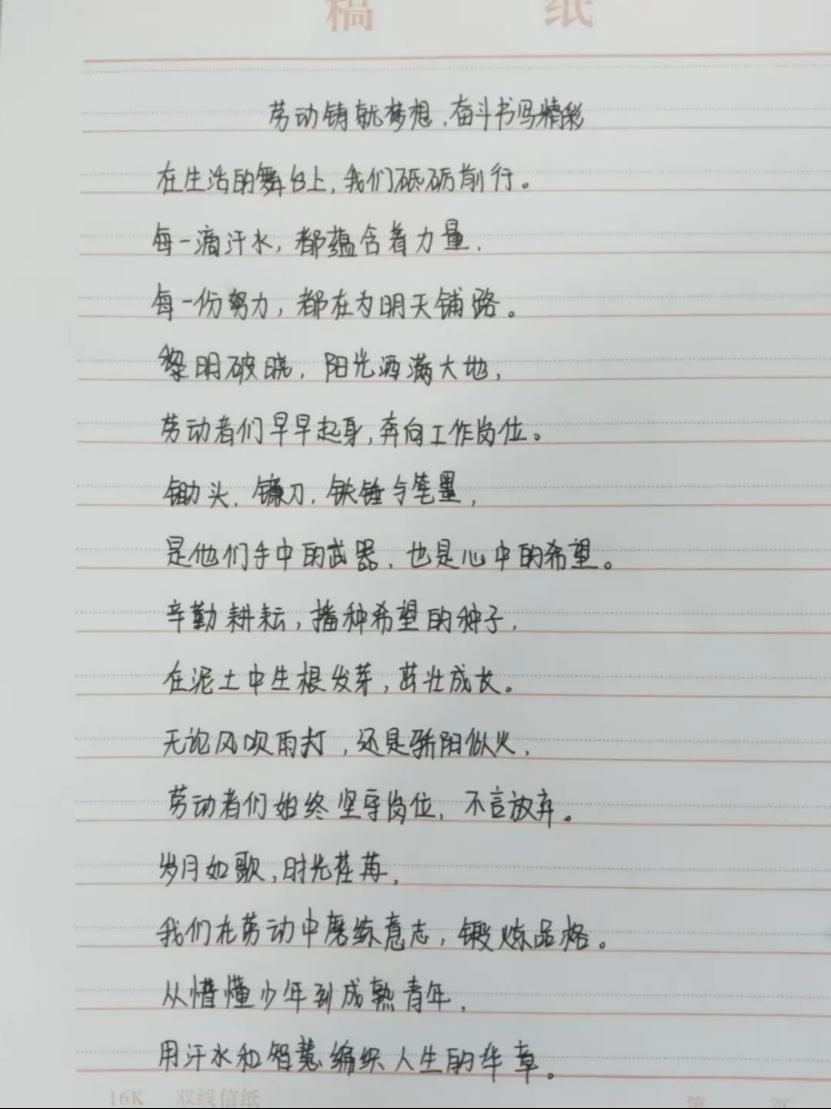 稿 纸
劳动铸就梦想,奋斗书写精彩
在生活的舞台上,我们砥砺前行。
每一滴汗水,都蕴含着力量,
每一份努力,都在为明天铺路。
黎明破晓,阳光洒满大地,
劳动者们早早起身,奔向工作岗位。
锄头,镰刀,铁锤与笔墨,
是他们手中的武器,也是心中的希望。
辛勤耕耘,播种希望的种子,
在泥土中生根发芽,茁壮成长。
无论风吹雨打,还是骄阳似火,
劳动者们始终坚守岗位,不言放弃。
岁月如歌,时光荏苒,
我们在劳动中磨练意志,锻炼品格。
从懵懂少年到成熟青年,
用汗水和智慧编织人生的华章。
16K 双线信纸 第 页